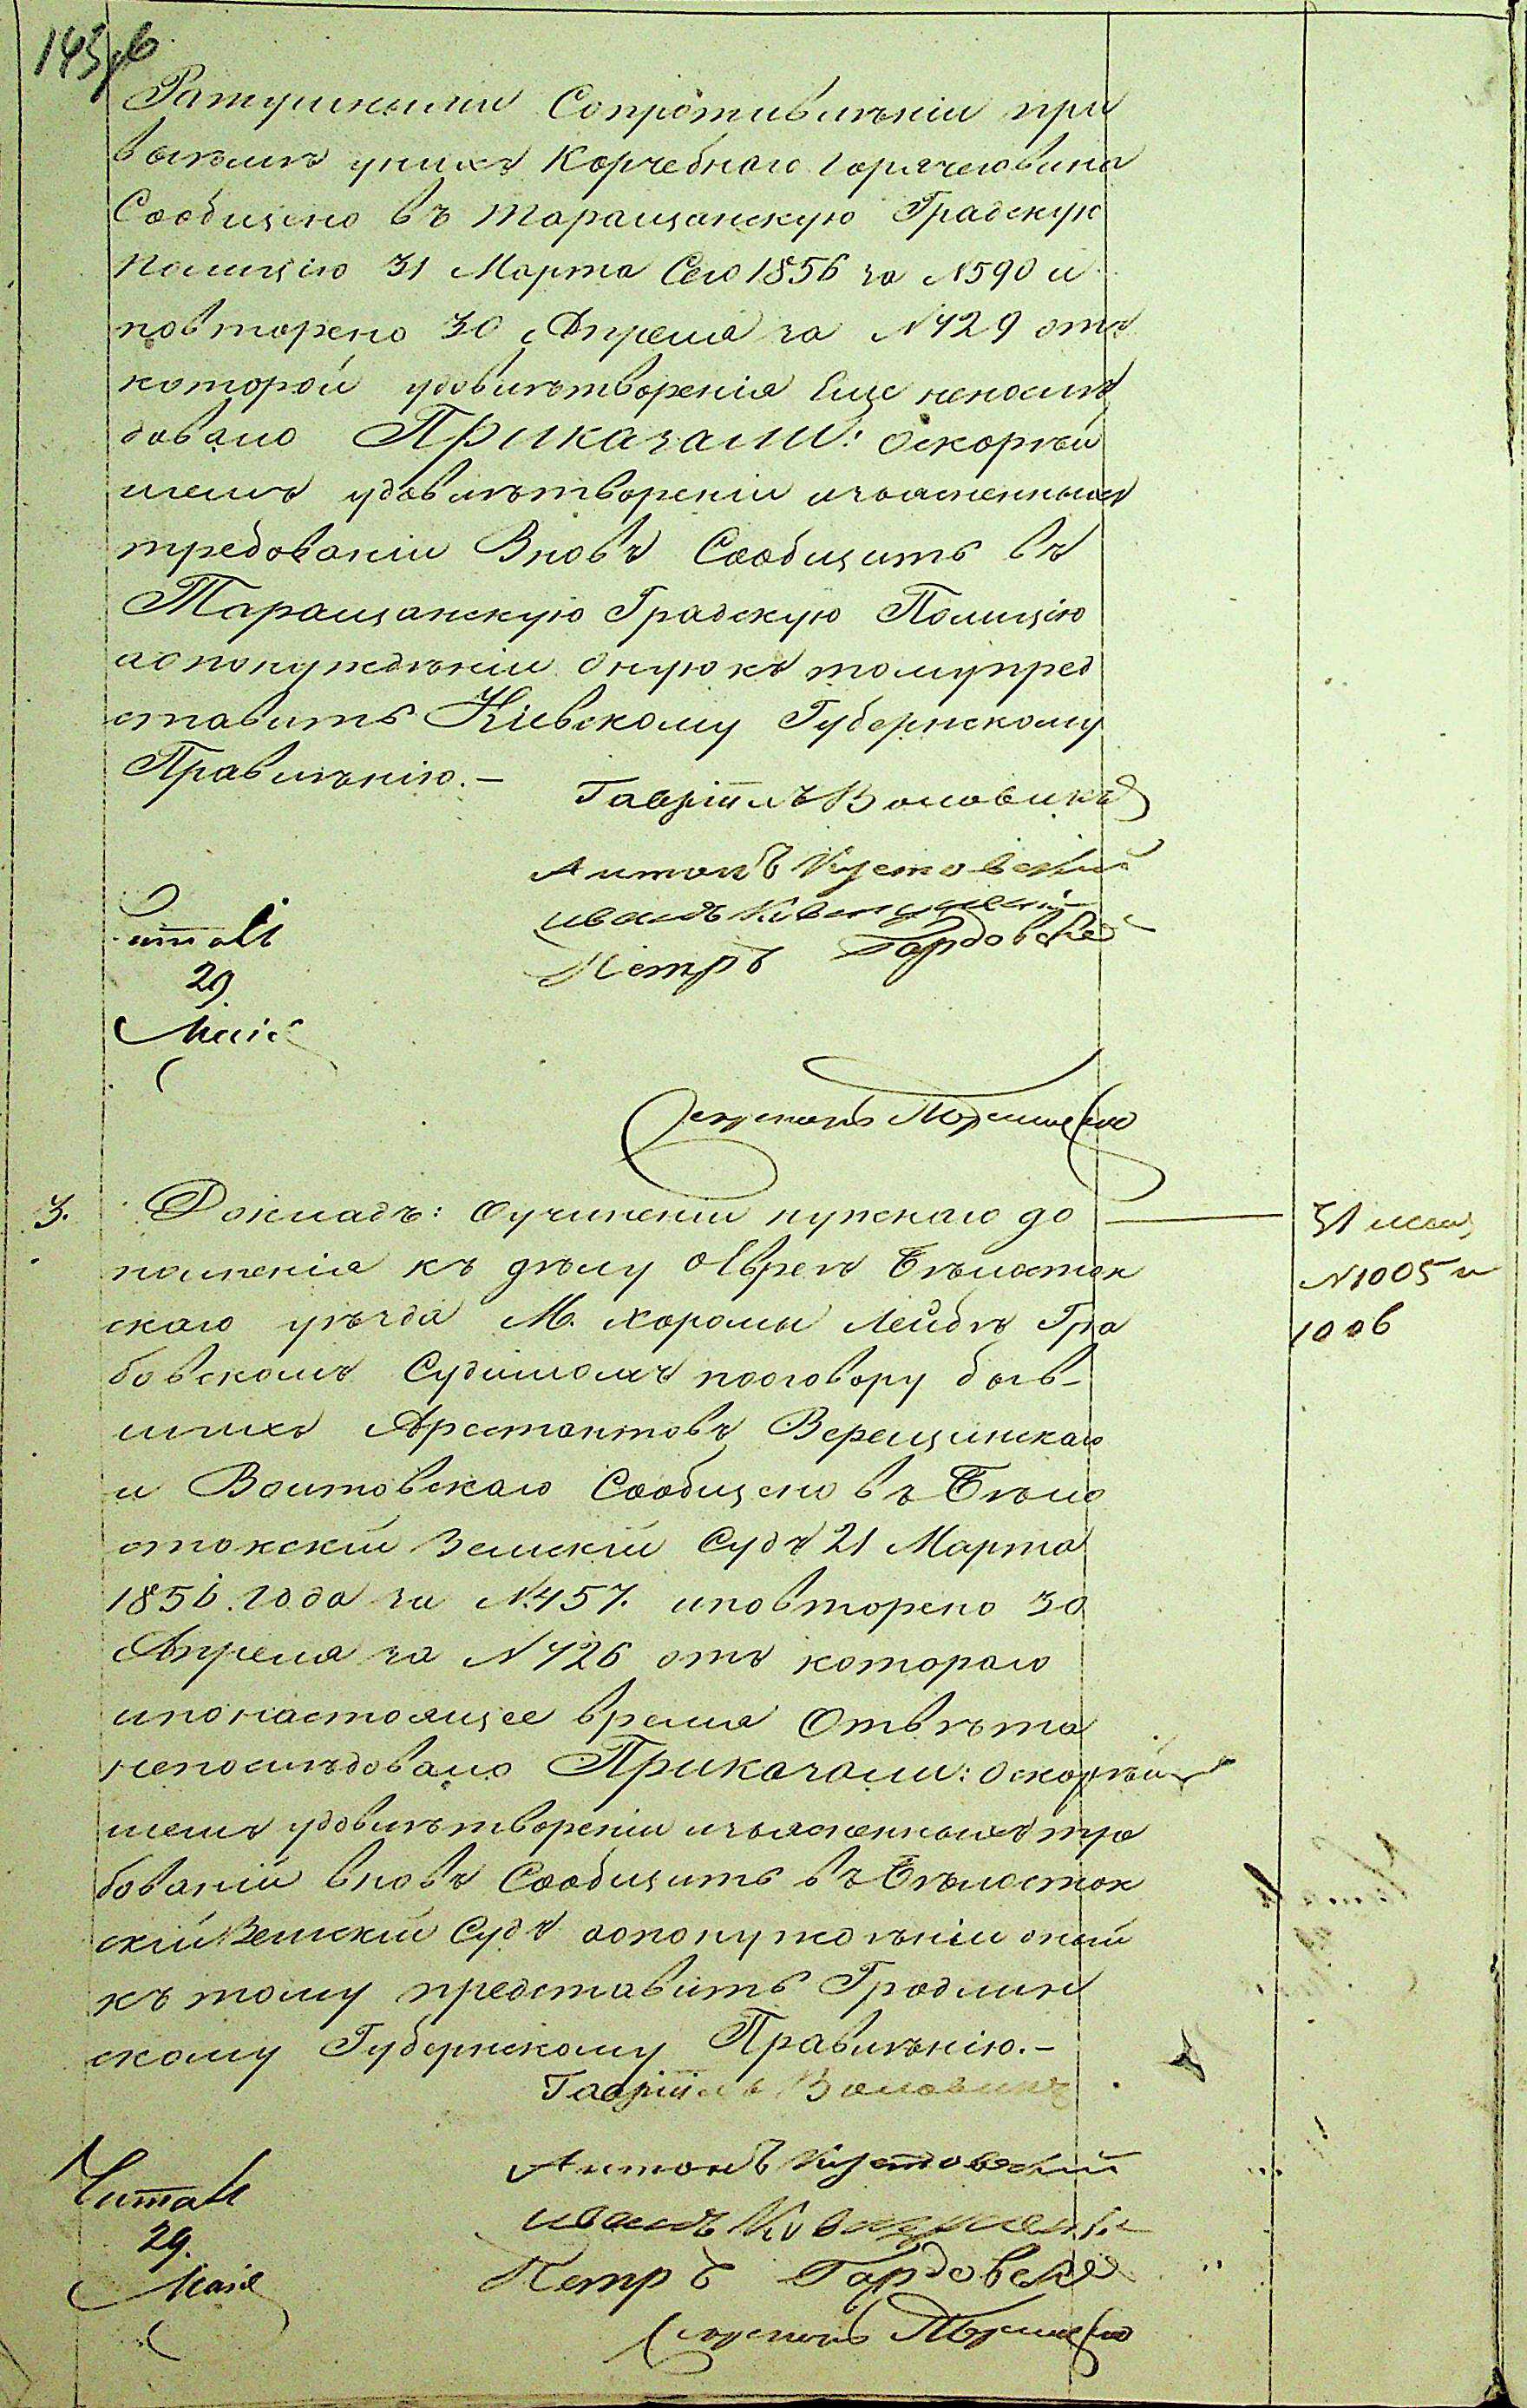 143 об
Ратушными Сопротивленіи при
выемке унихъ Корчебнаго горячеговина
Сообщено въ Таращанскую Градскую
Полицію 31 Марта Сего 1856 за N 590 и
повторено 30 Апреля за N 729 отъ
которой удовлѣтворенія Еще непослѣ
довало Приказали: оскорѣй
шемъ удовлѣтвореніи изъясненныхъ
требованіи Вновъ Сообщить въ
Таращанскую Градскую Полицію
аопонужденіи оную къ тому пред
ставить Кіевскому Губернскому
Правлѣнію.-
Гавріилъ Воловикъ
Антонъ Кустовскій
иванъ
Петръ Гордовскій
Читалъ
29.
Маія
3. Докладъ: Оучиненіи нужнаго до
полненія къ дѣлу оЕвреѣ Бѣлосток
скаго уѣзда М. Хорощи Лейбѣ Гра
бовскомъ Судимомъ пооговору быв-
шихъ Арестантовъ Верещинскаго
и Воитовскаго Сообщено въ Бѣло
стокскій Земскій Судъ 21 Марта
1856. года за N 457. иповторено 30
Апреля за N 726 отъ котораго
ипонастоящее время Отвѣта
непослѣдовало Приказали: оскорѣй
шемъ удовлѣтвореніи изъясненныхъ тре
бованіи вновъ Сообщить въ Бѣлосток
скій Земскій Судъ аопонужденіи оный
къ тому представить Гродлин
скому Губернскому Правлѣнію.-
31 мая
N 1005 и
1006
Гавріилъ Воловикъ
Антонъ Кустовскій
иванъ
Петръ Гордовскій
Читалъ
29.
Маія